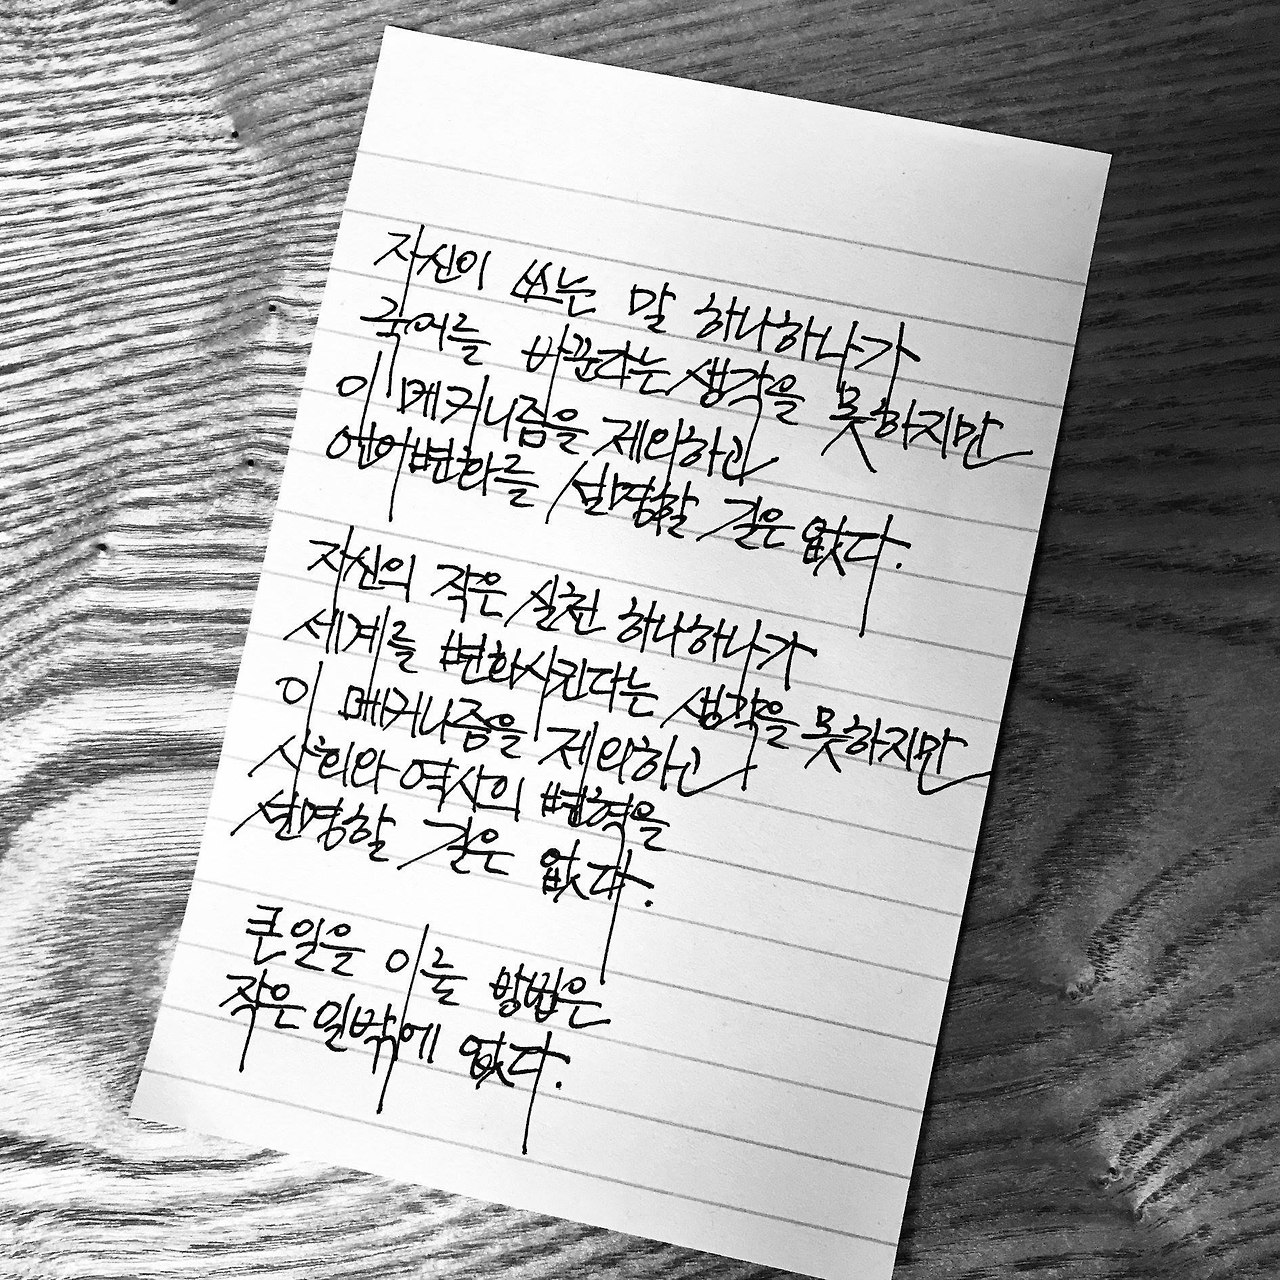 자신이 쓰는 말 하나하나가
국어를 바꾼다는 생각을 못하지만
이 메커니즘을 제외하고
언어변화를 설명할 길은 없다.
자신의 작은 실천 하나하나가
세계를 변화시킨다는 생각을 못하지만
이 메커니즘을 제외하고
사회와 역사의 변혁을
설명할 길은 없다.
큰일을 이룰 방법은
작은 일밖에 없다.